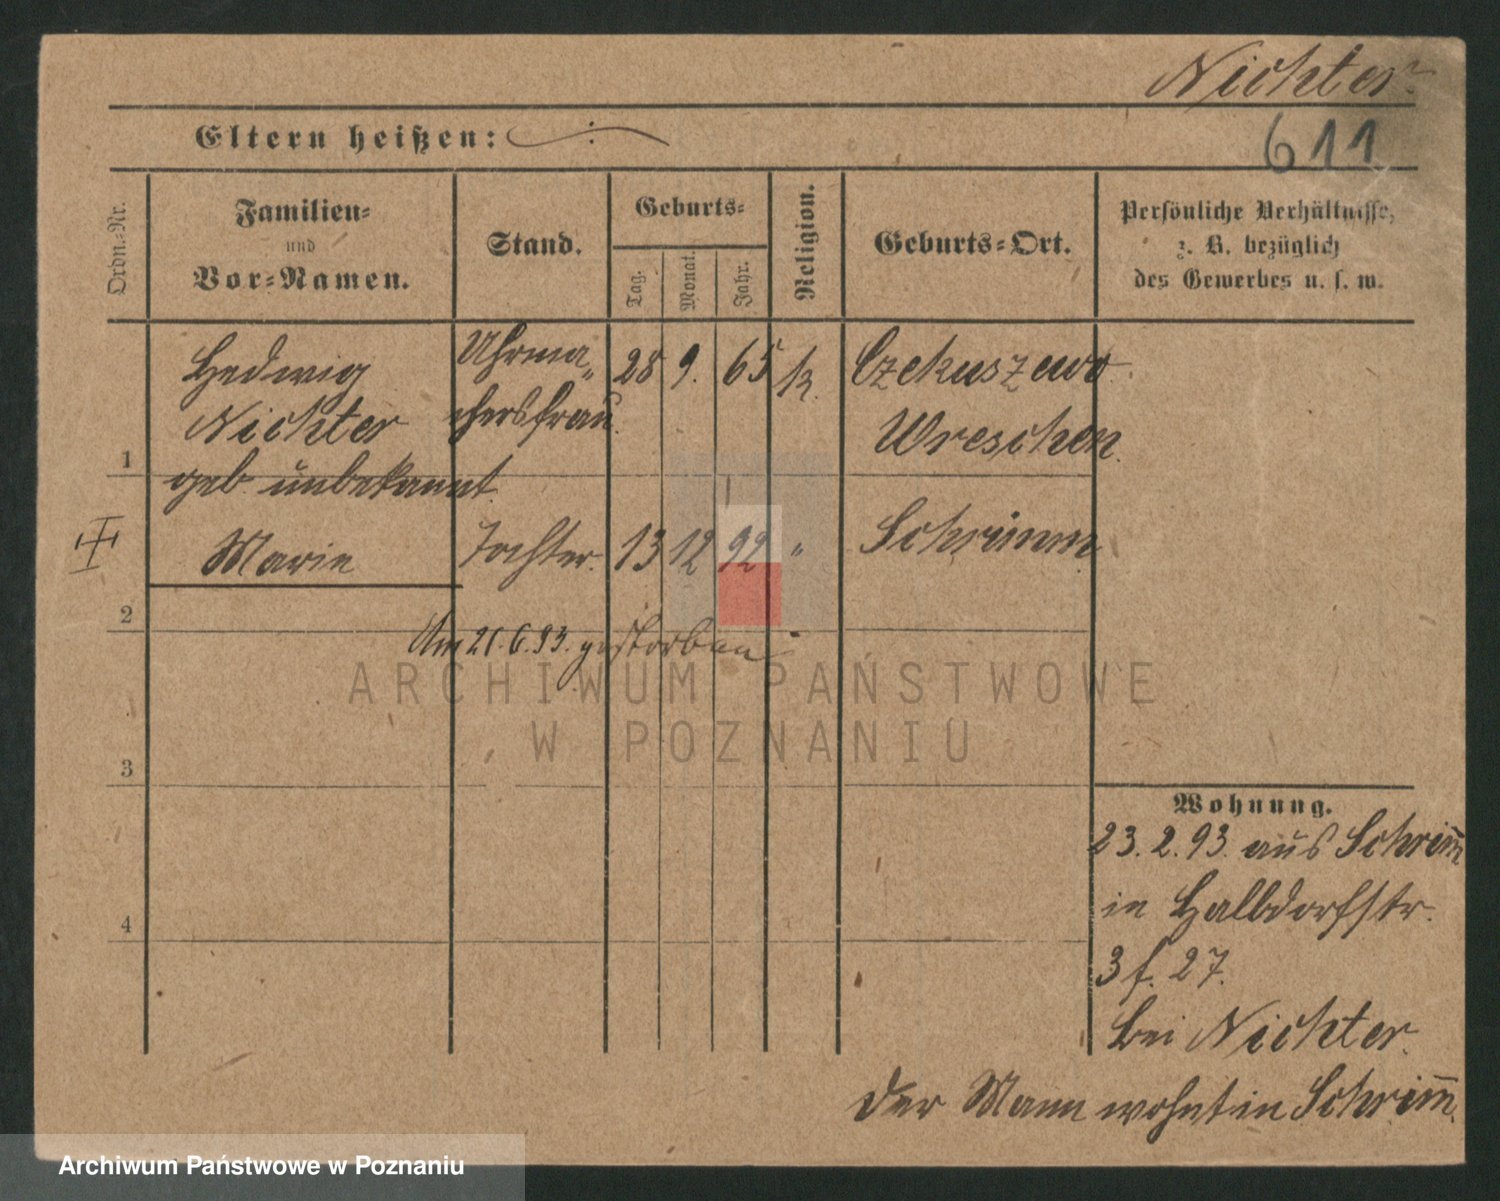 Nichter
611
Eltern heißen:
Ordn.-Nr.
Familien-
und
Vor-Namen.
Stand.
Geburts-
Tag.
Monat.
Jahr.
Religion.
Geburts-Ort.
Persönliche Verhältnisse,
z. B. bezüglich
des Gewerbes u. s. w.
1
Hedwig
Nichter
geb. unbekannt
Uhrma-
chersfrau.
28 9. 65 k.
Czekuszewo
Wreschen.
2
Marie Tochter. 13 12 92 " Schrimm
Am 21.6.93. gestorben
3
4
Wohnung.
23.2.93. aus Schrim̅
in Halbdorfstr.
3 f. 27.
bei Nichter.
Der Mann wohnt in Schrim̅.
ARCHIWUM PAŃSTWOWE
W POZNANIU
Archiwum Państwowe w Poznaniu